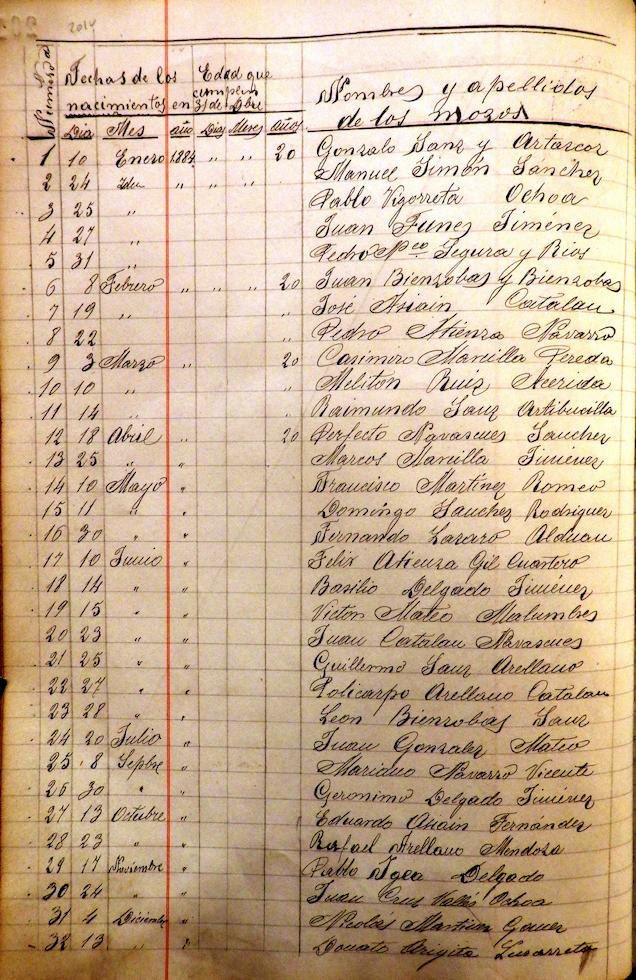 2014
Numeros
Fechas de los nacimientos
Edad que cumplen en 31 de Dbre
Nombres y apellidos de los mozos
Dia Mes año Dias Meses años
1 10 Enero 1884 " " 20 Gonzalo Sanz y
2 24 Idem " " " Manuel Simón Sánchez
3 25 " Pablo Vigorreta Ochoa
4 27 " Juan Funes Jiménez
5 31 " Pedro Fco Segura y Rios
6 8 Febrero " " " 20 Juan Bienzobas y Bienzobas
7 19 " " José Asiain Catalan
8 22 " Pedro Atienza Navarro
9 3 Marzo " 20 Casimiro Mancilla Pereda
10 10 " " Meliton Ruiz
11 14 " " Raimundo Sanz Artibucilla
12 18 Abril " 20 Perfecto Navascues Sanchez
13 25 " " Marcos Mancilla Jimenez
14 10 Mayo " Francisco Martinez Romeo
15 11 " " Domingo Sanchez Rodriguez
16 30 " " Fernando Lazaro Alduan
17 10 Junio " Felix Atienza Gil Cuartero
18 14 " " Basilio Delgado Jiménez
19 15 " " Victor Mateo Malumbres
20 23 " " Juan Catalan Navascues
21 25 " " Guillermo Sanz Arellano
22 27 " " Policarpo Arellano Catalan
23 28 " " Leon Bienzobas Sanz
24 20 Julio " Juan Gonzalez Mateo
25 8 Sepbre " Mariano Navarro Vicente
26 30 " " Geronimo Delgado Jiménez
27 13 Octubre " Eduardo Asiain Fernández
28 23 " " Rafael Arellano Mendoza
29 17 Noviembre " Pablo Delgado
30 24 " " Juan Cruz Vallés Ochoa
31 4 Diciembre " Nicolás Martinez
32 13 " " Donato